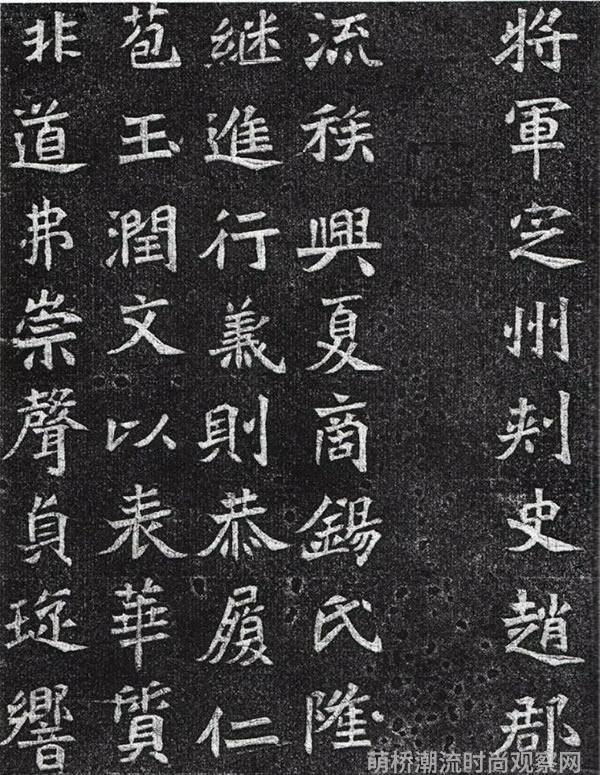 將軍㝎州刾史趙郡
流稱興夏商錫氏隆
継進行義則恭履仁
苞玉潤文以表華質
非道弗崇聲貞琁響
萌桥潮流时尚观察网